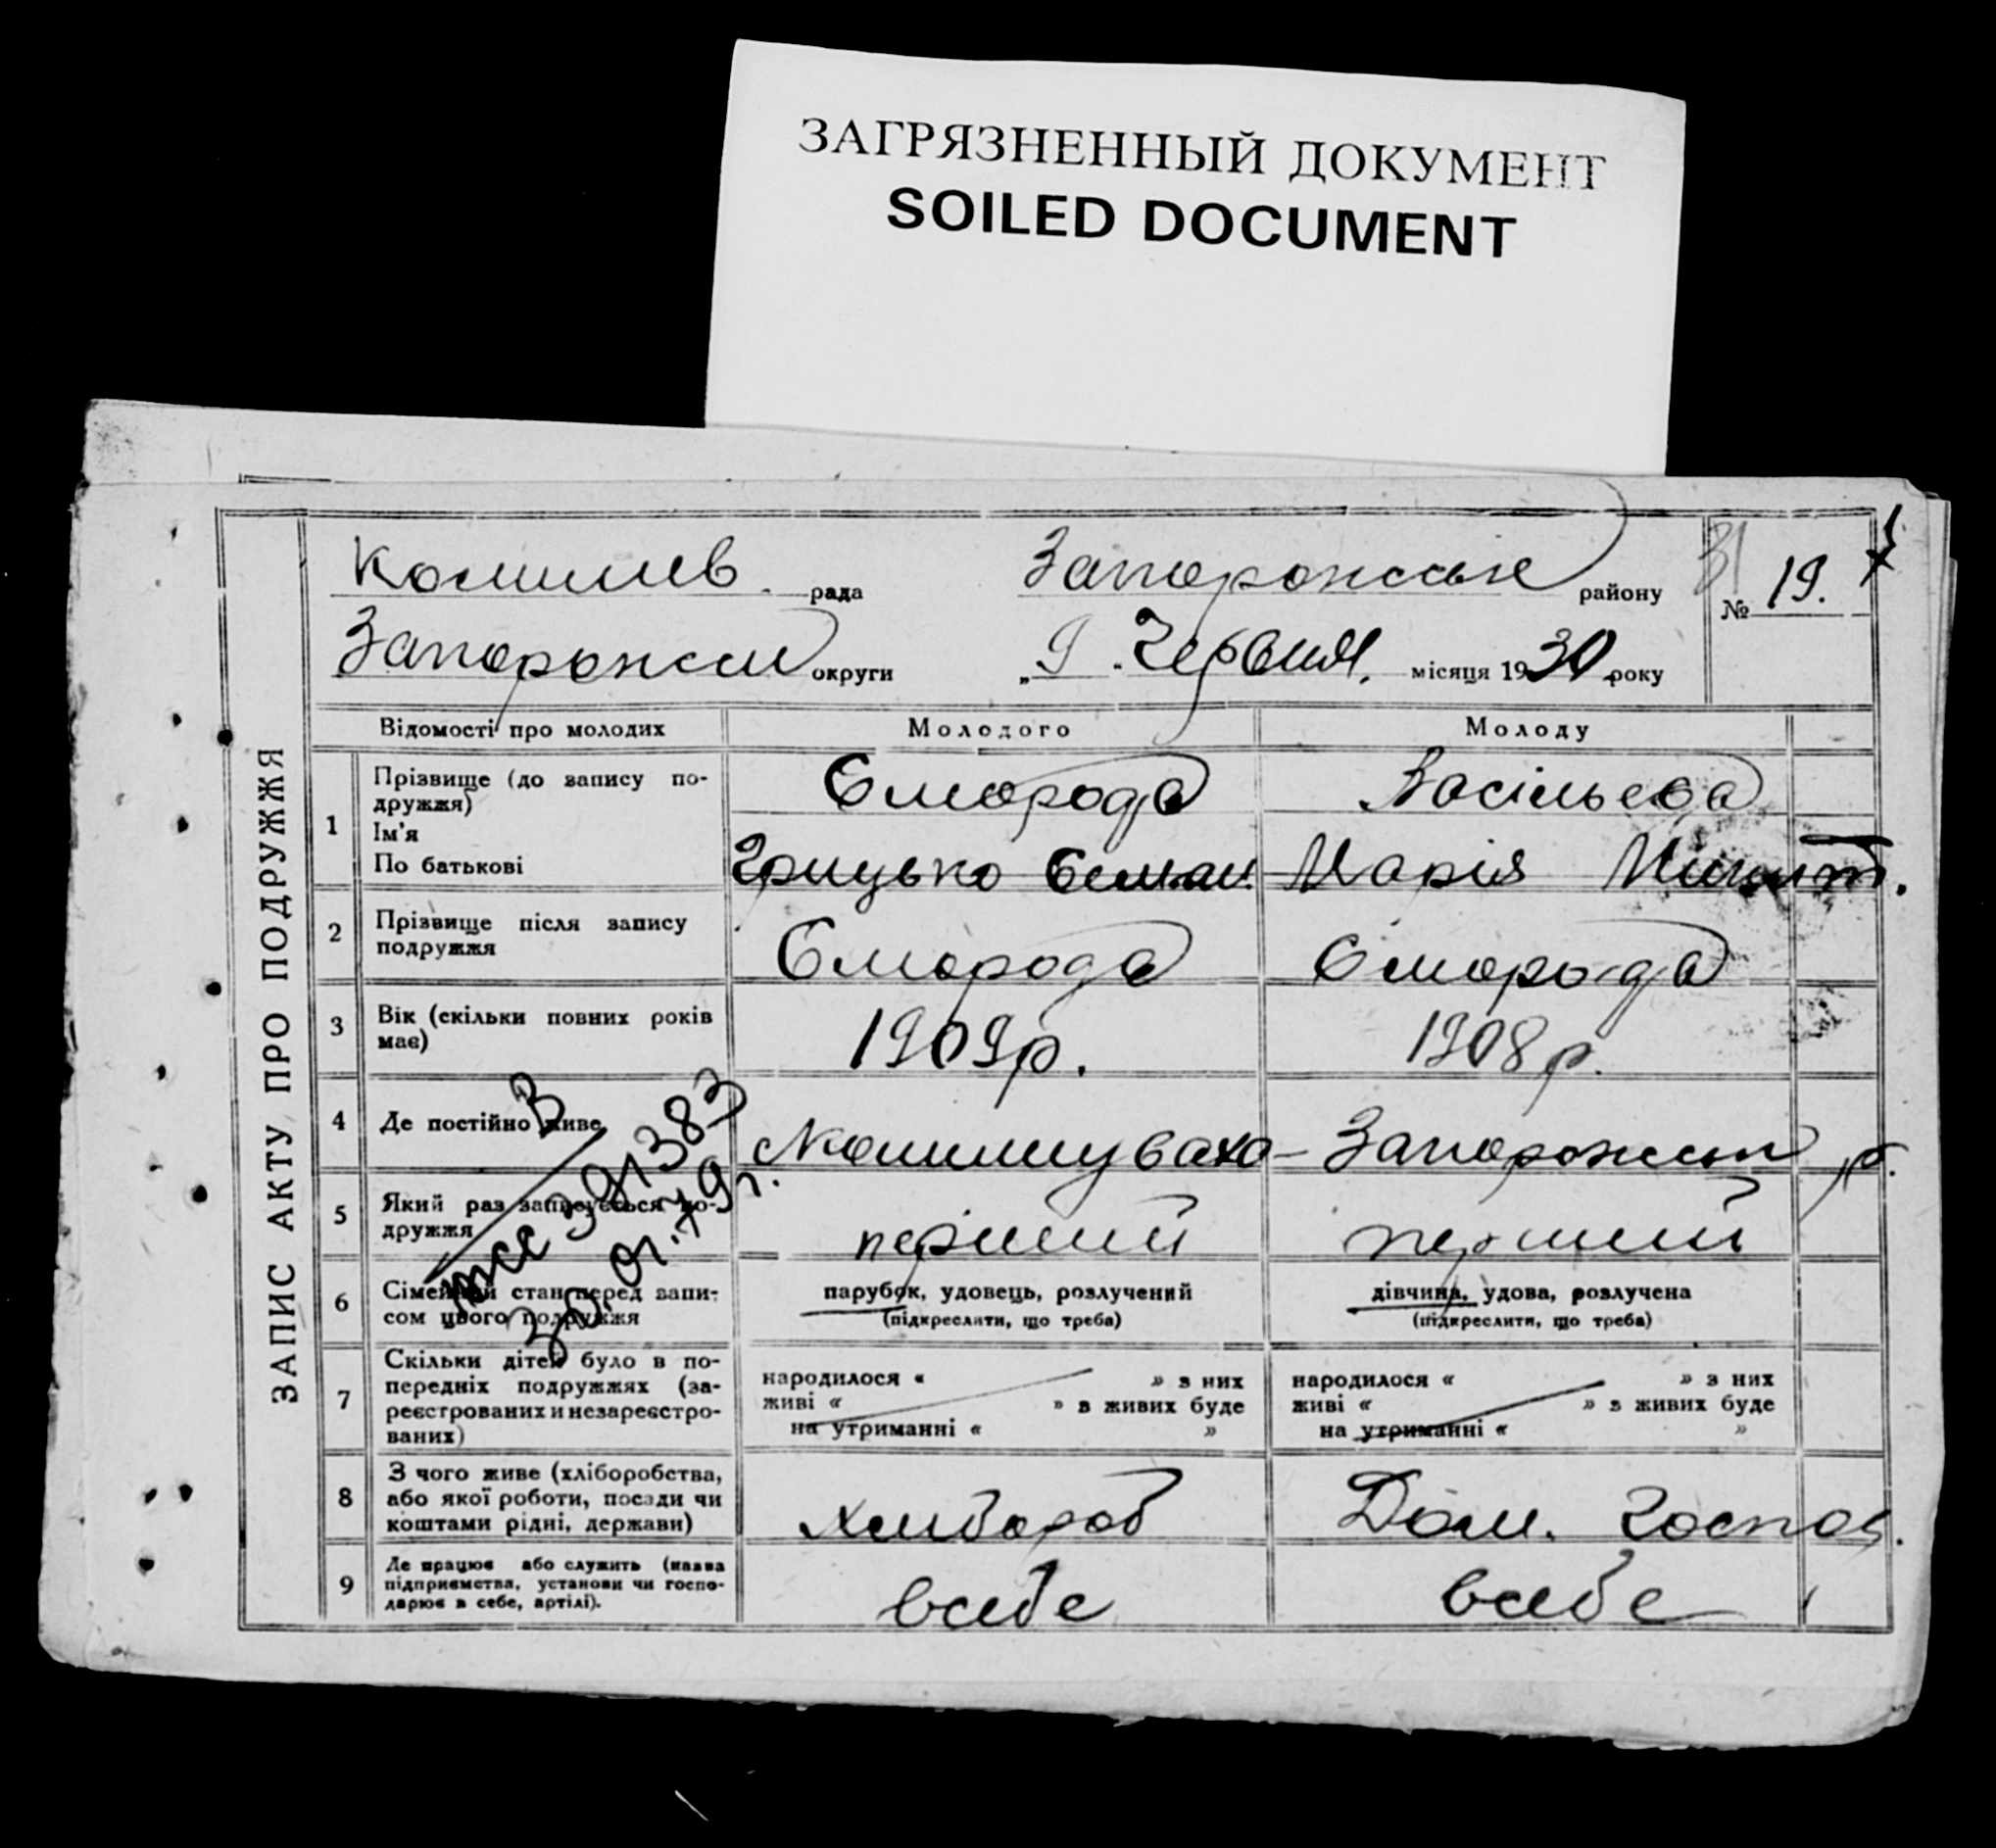 ЗАГРЯЗНЕННЫЙ ДОКУМЕНТ
SOILED DOCUMENT
ЗАПИС АКТУ ПРО ПОДРУЖЖЯ
рада району № 19.
округи „9 Червня місяця 1930 року
Відомості про молодих Молодого Молоду
1 Прізвище (до запису подружжя) Смородa Васільева
Ім'я
По батькові Грицько Семен. Марія
2 Прізвище після запису подружжя Сморода Сморода
3 Вік (скільки повних років має) 1909р. 1908р.
4 Де постійно живе Комишуваха
5 Який раз записується подружжя перший перший
6 Сімейний стан перед записом цього подружжя парубок, удовець, розлучений дівчина, удова, розлучена
(підкреслити, що треба) (підкреслити, що треба)
7 Скільки дітей було в попередніх подружжях (зареєстрованих и незареєстрованих)
народилося « » з них народилося « » з них
живі « » в живих буде живі « » в живих буде
на утриманні « » на утриманні « »
8 З чого живе (хліборобства, або якої роботи, посади чи коштами рідні, держави) хлибороб Дом. господ.
9 Де працює або служить (назва підприємства, установи чи господарює в себе, артілі). всебе всебе
391383
30.01.79 г.